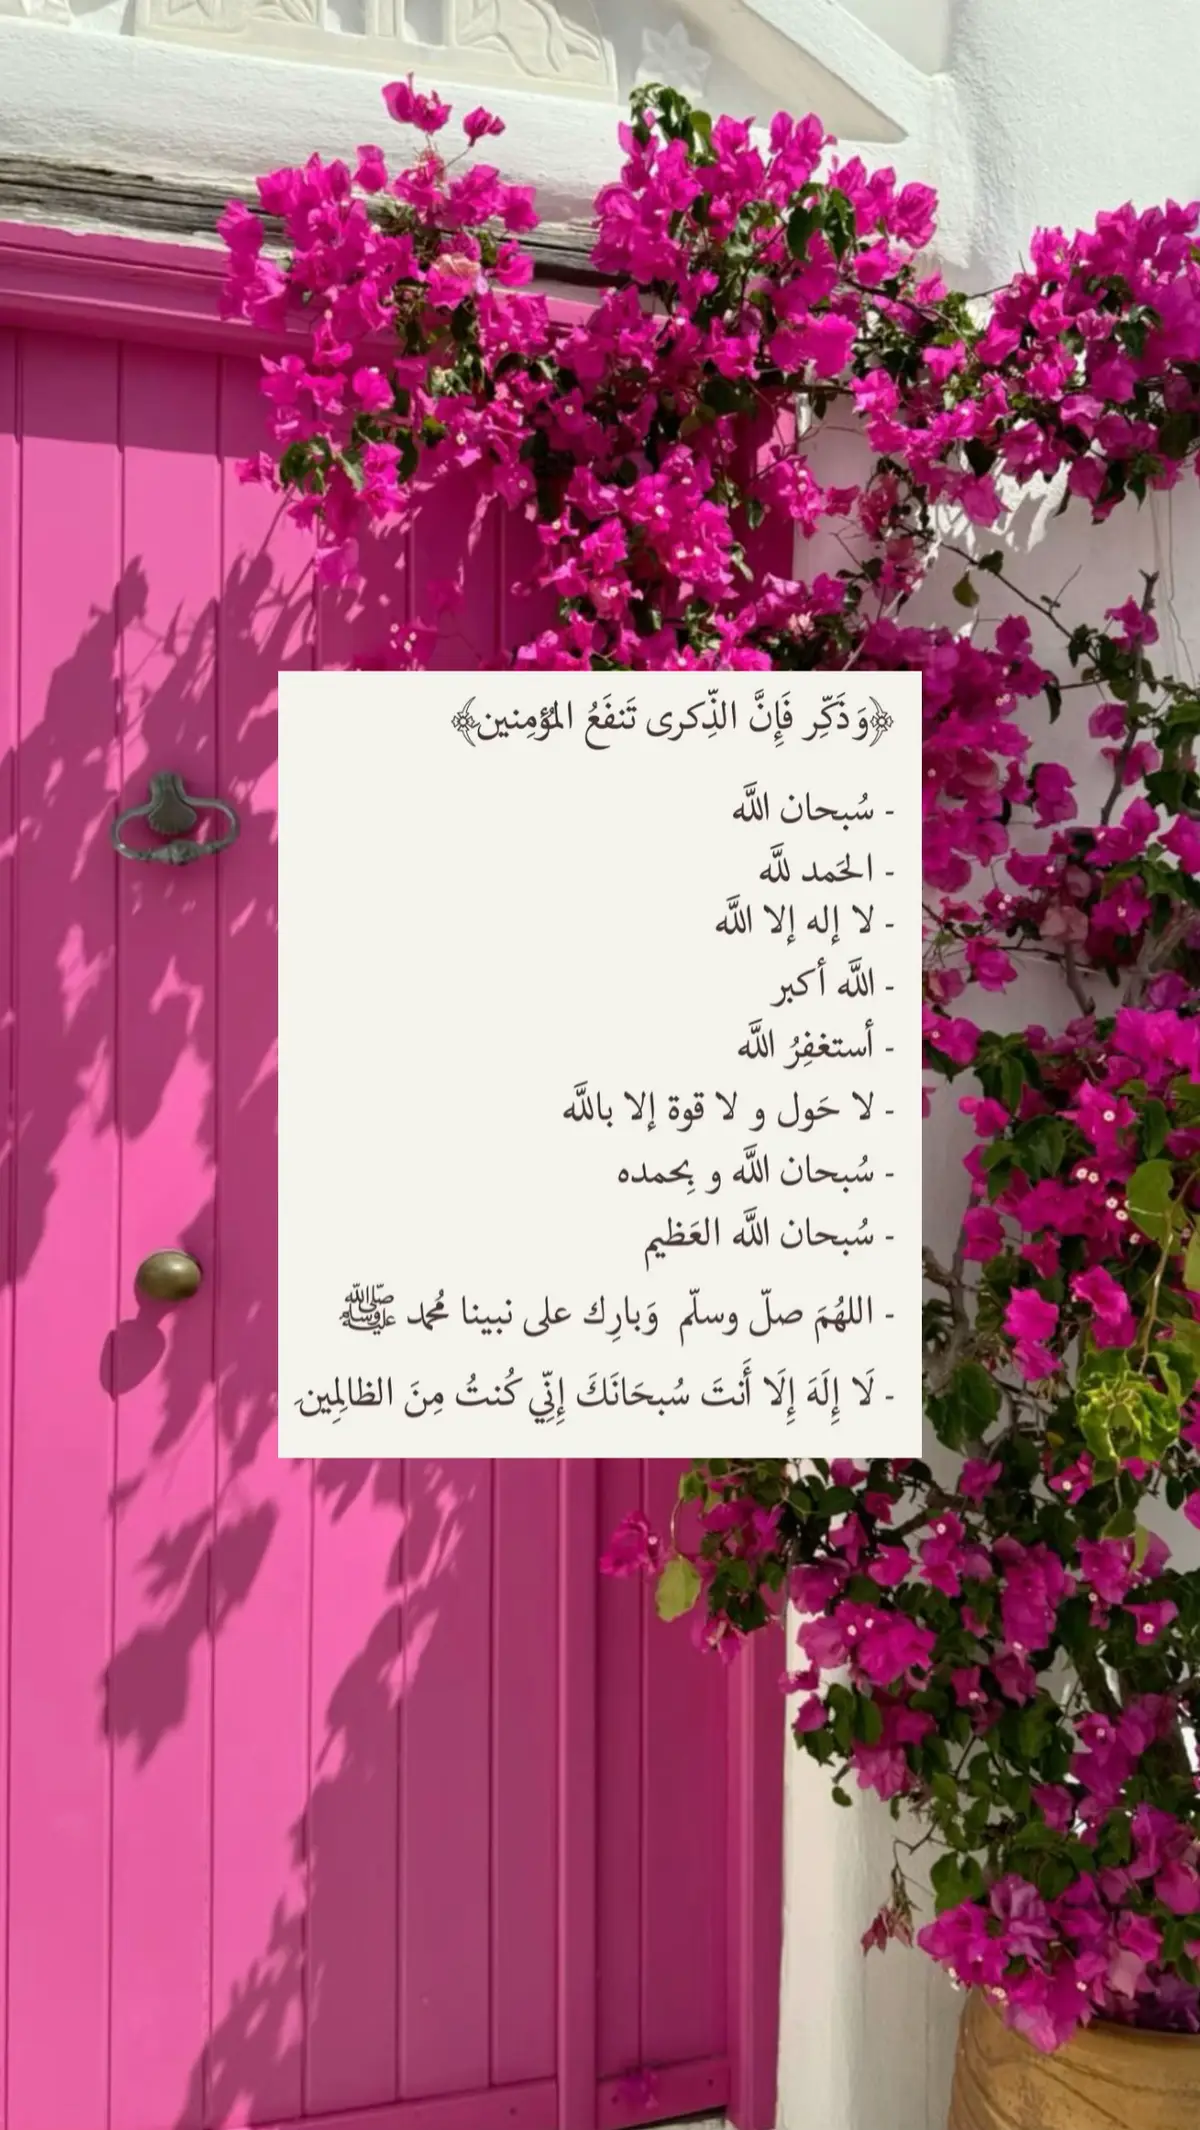 ﴿وَذَكِّر فَإِنَّ الذِّكرى تَنفَعُ المُؤمِنين﴾
- سُبحان اللَّه
- الحَمد للَّه
- لا إله إلا اللَّه
- اللَّه أكبر
- أستغفِرُ اللَّه
- لا حَول و لا قوة إلا باللَّه
- سُبحان اللَّه و بِحمده
- سُبحان اللَّه العَظيم
- اللهُمَ صلّ وسلّم وَبارِك على نبينا مُحمد ﷺ
- لَا إِلَهَ إِلَا أَنتَ سُبحَانَكَ إِنِّي كُنتُ مِنَ الظالِمِين